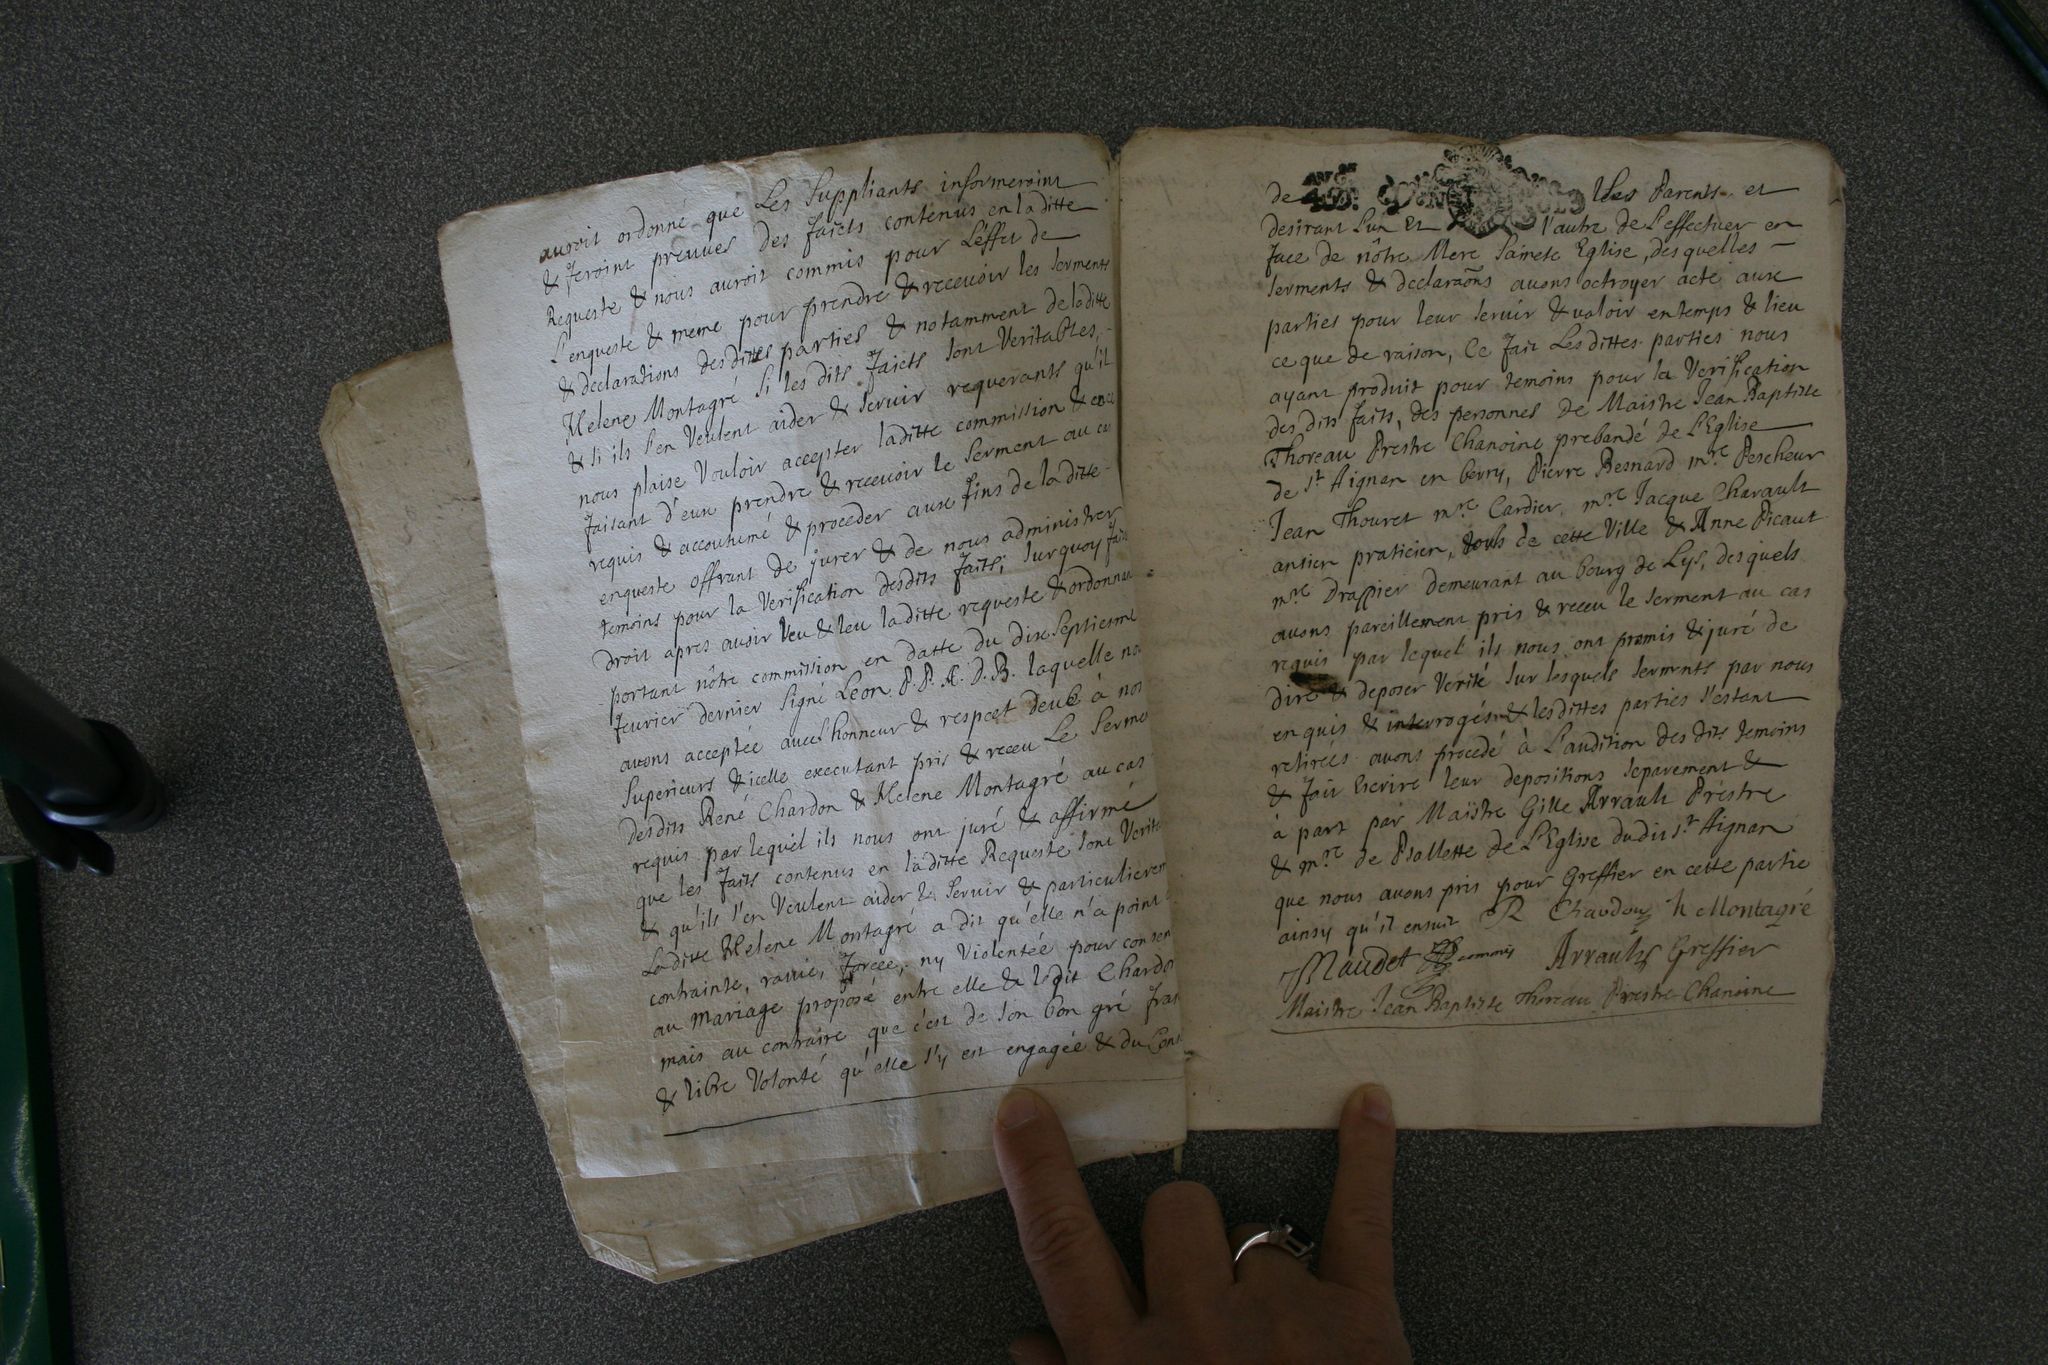 auroit ordonné que Les Suppliants informeroint
& feroint preuves des faicts contenus en laditte
Requeste & nous auroit commis pour L'éffet de
L'enqueste & meme pour prendre & recevoir les serments
& declarations desdittes parties & notamment de laditte
Helene Montagré Si les dits faicts sont Veritables,
& si ils s'en Veulent aider & servir requerants qu'il
nous plaise Vouloir accepter laditte commission & en ce
faisant d'eux prendre & recevoir le serment au cas
requis & accoutumé & proceder aux fins de laditte
enqueste offrant de jurer & de nous administrer
temoins pour la Verification desdits faits, surquoy fais
droit apres avoir Veu & leu laditte requeste & ordonnan
portant nôtre commission en datte du dix septiesme
fevrier dernier signé Leon P. P. A. D. B. laquelle nou
avons acceptée avec honneur & respect deub à nos
Superieurs & icelle executant pris & receu Le serme
desdits René Chardon & Helene Montagré au cas
requis par lequel ils nous ont juré & affirmé
que les faits contenus en laditte Requeste sont Verita
& qu'ils s'en Veulent aider & servir & particulierem
Laditte Helene Montagré a dit qu'elle n'a point
contrainte, ravie, forcée, ny Violentée pour consen
au mariage proposé entre elle & ledit Chardon
mais au contraire que c'est de son bon gré fran
& libre Volonté qu'elle s'y est engagée & du Cons
de Les Parents et
desirant L'un Et l'autre de L'effectuer en
face de nôtre Mere Saincte Eglise, des quelles
serments & declaraõns avons octroyer acte aux
parties pour leur servir & valoir en temps & lieu
ce que de raison, Ce fait Lesdittes parties nous
ayant produit pour temoins pour la Verification
des dits faits, des personnes de Maistre Jean Baptiste
Thoreau Prestre Chanoine prebandé de L'Eglise
de St Aignan en berry, Pierre Besnard mre Pescheur
Jean Thouret mre Cardier, mre Jacque Charault
antien praticien, tous de cette Ville & Anne Picaut
mre Drappier demeurant au bourg de Lys, desquels
avons pareillement pris & receu le serment au cas
requis par lequel ils nous ont promis & juré de
dire & deposer Verité sur lesquels serments par nous
enquis & interrogés & lesdittes parties s'estant
retirées avons procedé à L'audition des dits temoins
& fait Escrire leur depositions separement &
à part par Maistre Gille Arrault Prestre
& mre de Psallette de L'Eglise dudit St Aignan
que nous avons pris pour Greffier en cette partie
ainsy qu'il ensuit R Chardon h Montagré
Maudet Arrault Greffier
Maistre Jean Baptiste Thoreau Prestre Chanoine